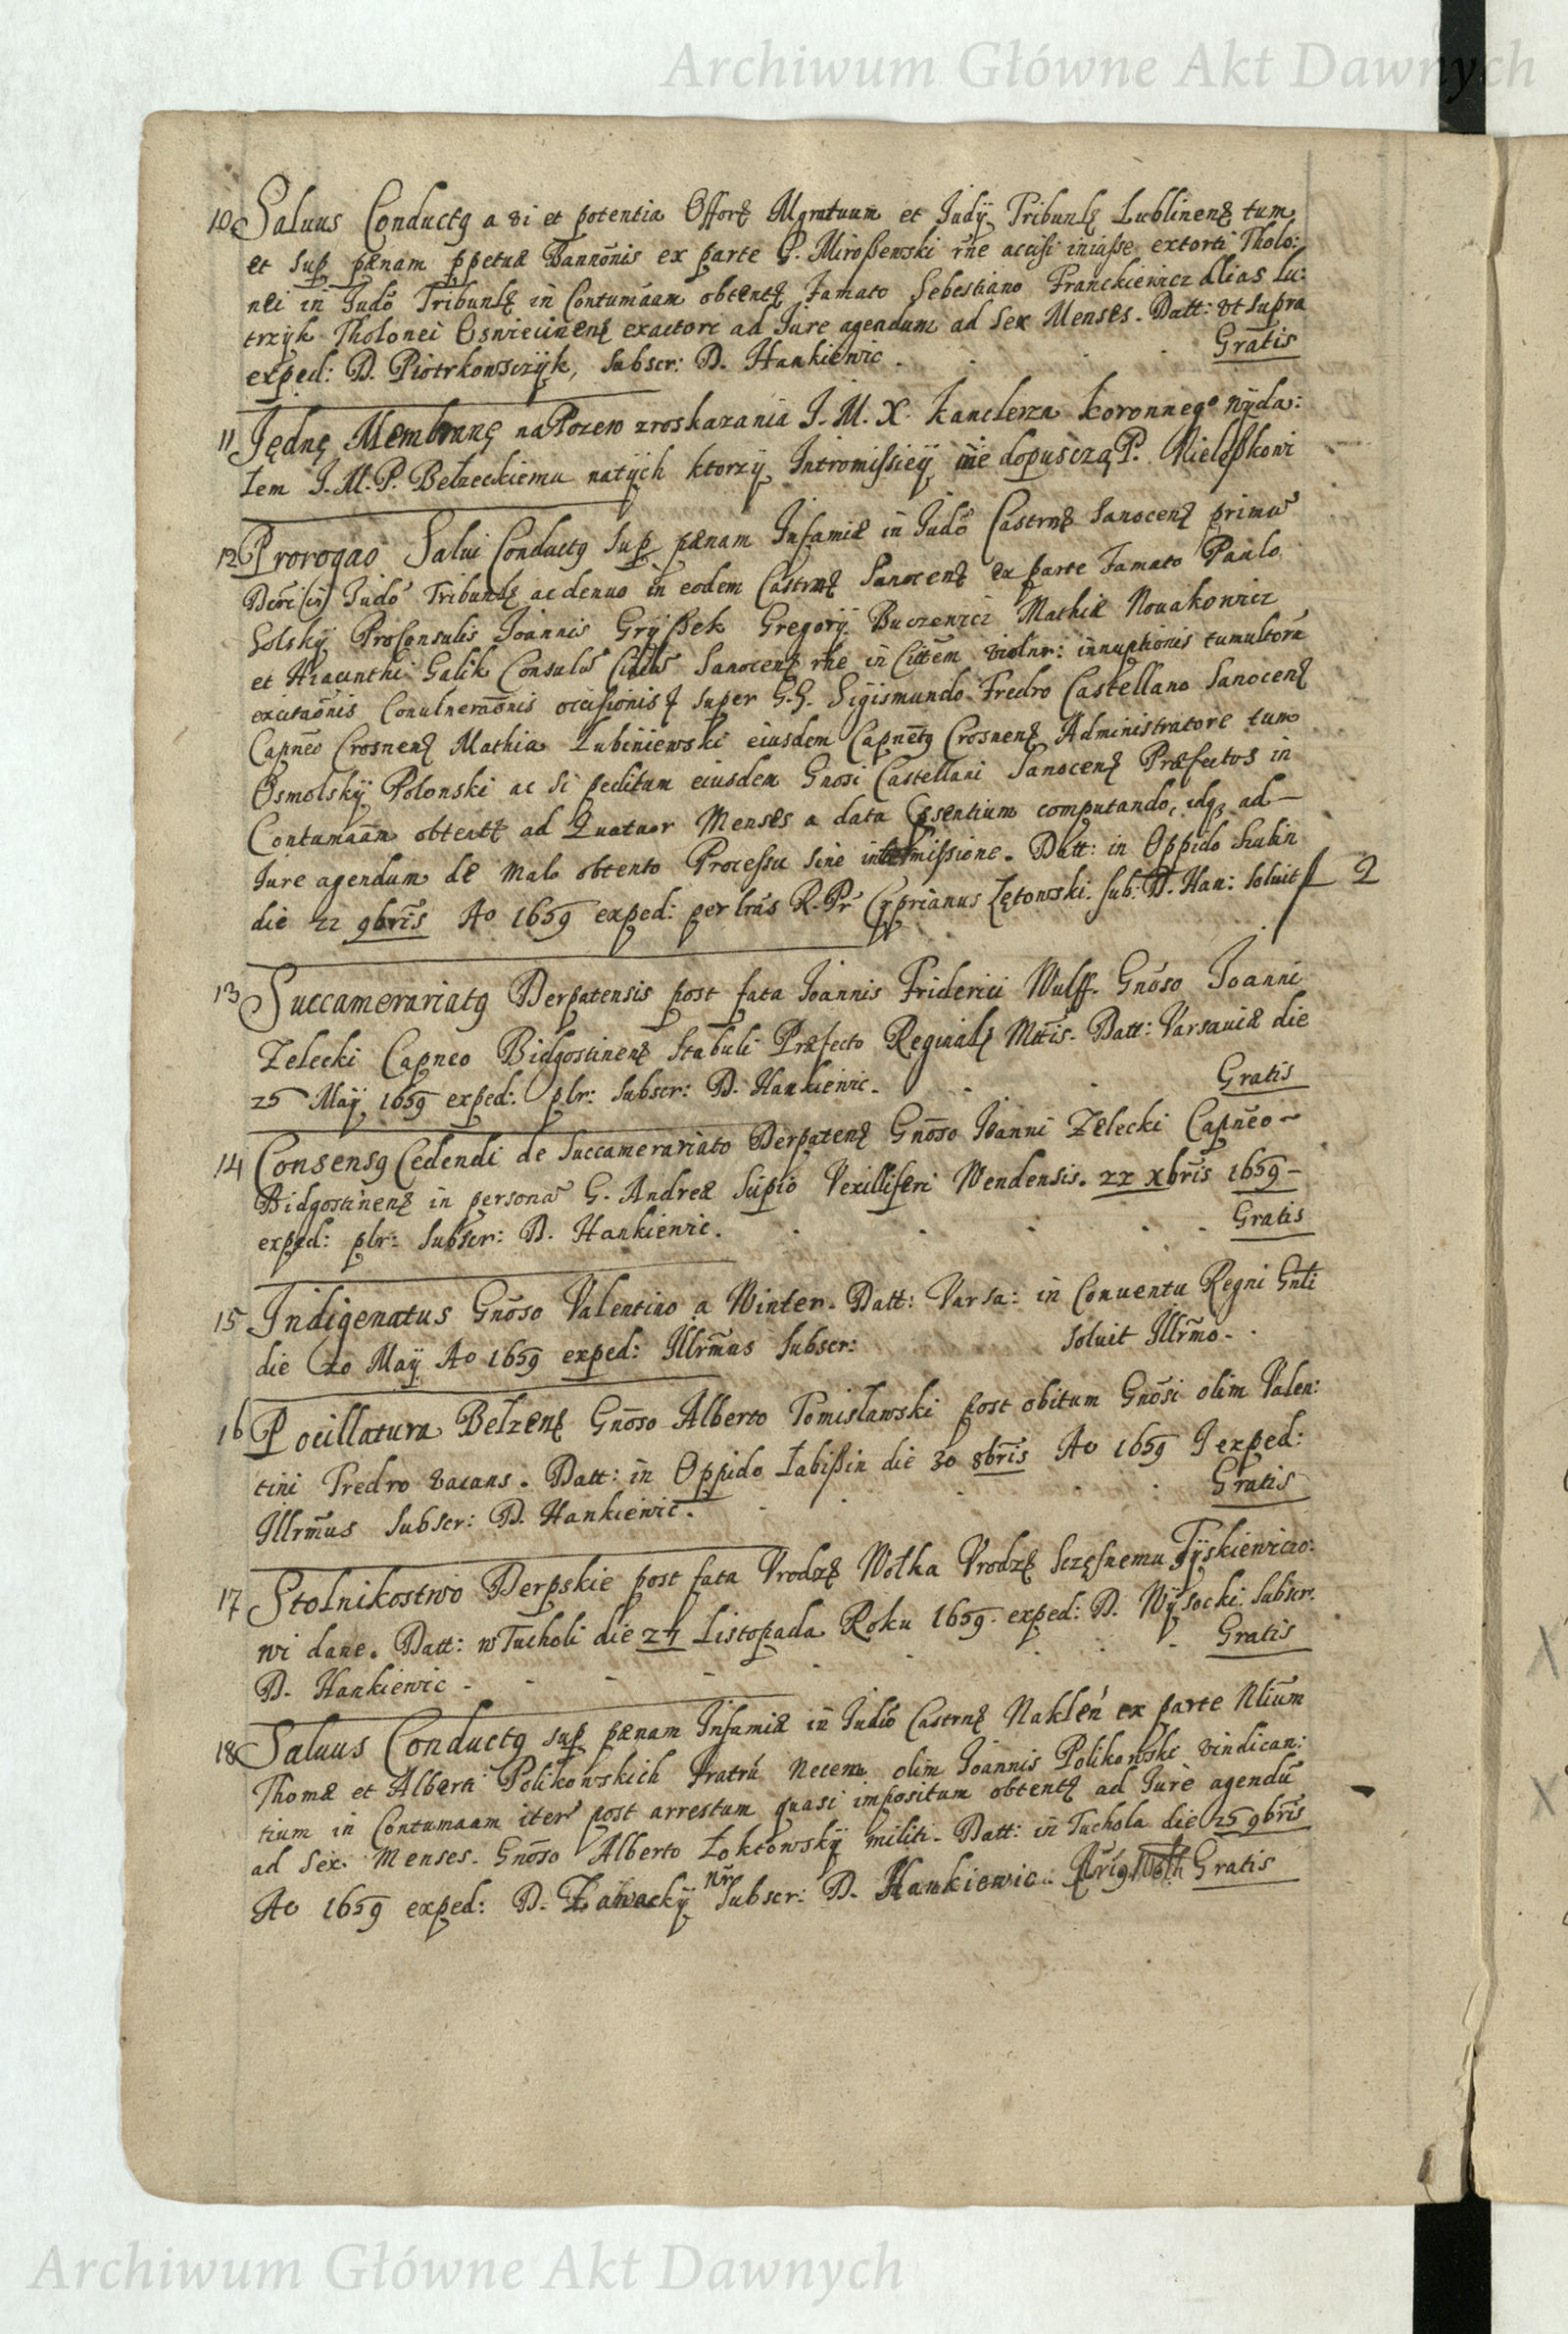 Archiwum Główne Akt Dawnych
10 Saluus Conductꝰ a vi et potentia Offorꝫ Mgratuum et Judÿ Tribunlꝫ Lublinenꝫ tum
et sup pænam ppetuæ Bannōnis ex parte G. Miroßewski rñe accisi iniuſse extorti Tholo:
nei in Judō Tribunlꝫ in Contumāam obtentꝫ Famato Sebestiano Franckiewicz alias Lu:
trzÿk Tholonei Osniecinenꝫ exactori ad Jure agendum ad Sex Menses. Datt: vt supra
exped: D. Piotrkowsczÿk, subscr: D. Hankiewic. Gratis
11 Jędnę Membranę na Pozew z roskazania J. M. X. Kanclerza koronnego wÿda:
łem J. M. P. Bełzeckiemu na tÿch ktorzÿ Intromiſsieÿ nie dopusczą P. Wielopßkowi
12 Prorogao Salui Conductꝰ sup pænam Infamiæ in Judō Castrnꝫ Sanocenꝫ primū
Judō Tribunlꝫ ac denuo in eodem Castrnꝫ Sanocenꝫ ex parte Famato Paulo
Solskÿ Proconsulis Joannis Grÿßek Gregorÿ Buczewicz Mathiæ Nouakowicz
et Hiacinthi Galik Consulū Ciuitū Sanocenꝫ rñe in Cittēm violnr: innuptionis tumultorū
excitaōnis Conulneraōnis occisionisqꝫ super G. G. Sigismundo Fredro Castellano Sanocenꝫ
Capnēo Crosnenꝫ Mathia Lubiniewski eiusdem Capnētꝰ Crosnenꝫ Administratore tum
Osmolskÿ Polonski ac si peditum eiusdem Gnosi Castellani Sanocenꝫ Præfectos in
Contumaām obtentꝫ ad Quatuor Menses a data Pꝛsentium computando, idqꝫ ad
Jure agendum de malo obtento Proceſsu sine intermiſsione. Datt: in Oppido Lubin
die 22 9bris Ao 1659 exped: per lrās R. Pr Cyprianus Zętowski. sub: D. Han: soluit f 2
13 Succamerariatꝰ Derpatensis post fata Joannis Friderici Wulff. Gnōso Joanni
Zelecki Capneo Bidgostinenꝫ Stabuli Præfecto Reginalꝫ Mttis. Datt: Varsauiæ die
25 Maÿ 1659 exped: plr: subscr: D. Hankiewic. Gratis
14 Consensꝰ Cedendi de Succamerariato Derpatenꝫ Gnōso Joanni Zelecki Capnēo
Bidgostinenꝫ in personā G. Andreæ Scipio Vexilliferi Wendensis. 22 Xbris 1659
exped: plr: subscr: D. Hankiewic. Gratis
15 Indigenatus Gnōso Valentino a Winter. Datt: Varsa: in Conuentu Regni Gnli
die 20 Maÿ Ao 1659 exped: Illrm̄us subscr: soluit Illrm̄o.
16 Pocillatura Belzenꝫ Gnōso Alberto Tomisławski post obitum Gnōsi olim Valen:
tini Fredro vacans. Datt: in Oppido Łabißin die 30 8bris Ao 1659 exped:
Illrm̄us subscr: D. Hankiewic. Gratis
17 Stolnikostwo Derpskie post fata Vrodzꝫ Wołka Vrodzꝫ Sczęſnemu Tÿskiewiczo:
wi dane. Datt: w Tucholi die 24 Listopada Roku 1659. exped: D. Wÿsocki. subscr.
D. Hankiewic. Gratis
18 Saluus Conductꝰ sup pænam Infamiæ in Judō Castrnꝫ Naklen ex parte Nlium
Thomæ et Alberti Polikowskich Fratrū Necem olim Joannis Polikowski vindican:
tium in Contumaam iterū post arrestum quasi impositum obtentꝫ ad Jure agendū
ad Sex Menses. Gnōso Alberto Łoktowskÿ militi. Datt: in Tuchola die 25 9bris
Ao 1659 exped: D. Zawackÿ Nr̄ subscr: D. Hankiewic: Gratis
Archiwum Główne Akt Dawnych